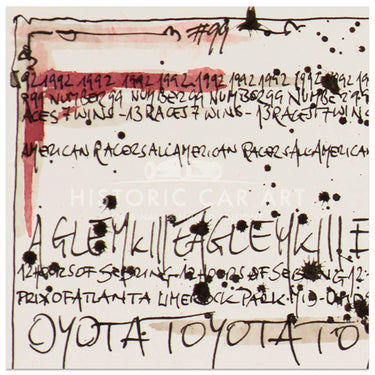 #99
92 1992 1992 1992 1992 1992 1992 1992 1992 19
R99 NUMBER99 NUMBER99 NUMBER99 NUMBER99
ACES 7 WINS - 13 RACES 7 WINS - 13 RACES 7 WINS
AMERICAN RACERS ALL AMERICAN RACERS ALL AMERICAN
HISTORIC CAR ART
AGLE MKIII EAGLE MKIII E
12 HOURS OF SEBRING - 12 HOURS OF SEBRING - 12
PRIX OF ATLANTA LIME ROCK PARK
OYOTA TOYOTA TO